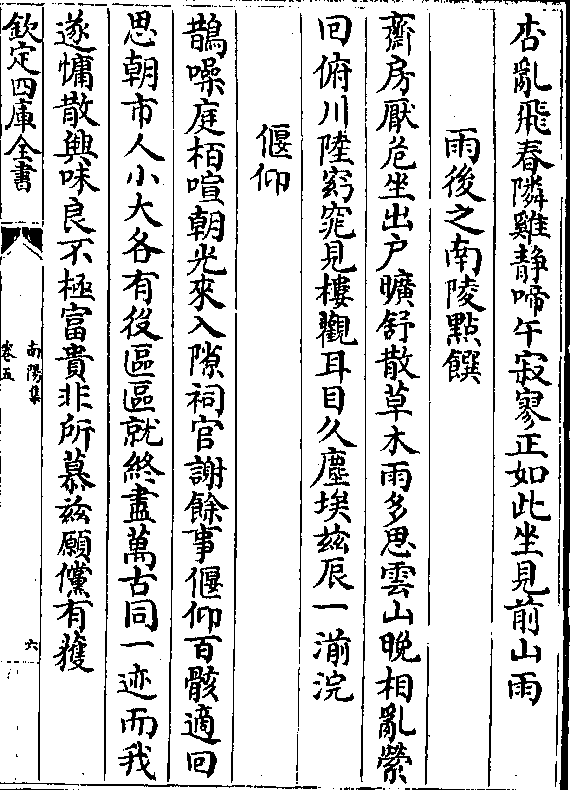 杏亂飛春隣雞靜啼午寂寥正如此坐見前山雨
雨後之南陵點饌
齋房厭危坐出户曠舒散草木雨多思雲山晚相亂縈
回俯川陸窈窕見樓觀耳目久塵埃兹辰一湔浣
偃仰
鵲噪庭栢喧朝光來入隙祠官謝餘事偃仰百骸適回
思朝市人小大各有役區區就終盡萬古同一迹而我
遂慵散興味良不極富貴非所慕兹願儻有獲
欽定四庫全書
南陽集
卷五
六